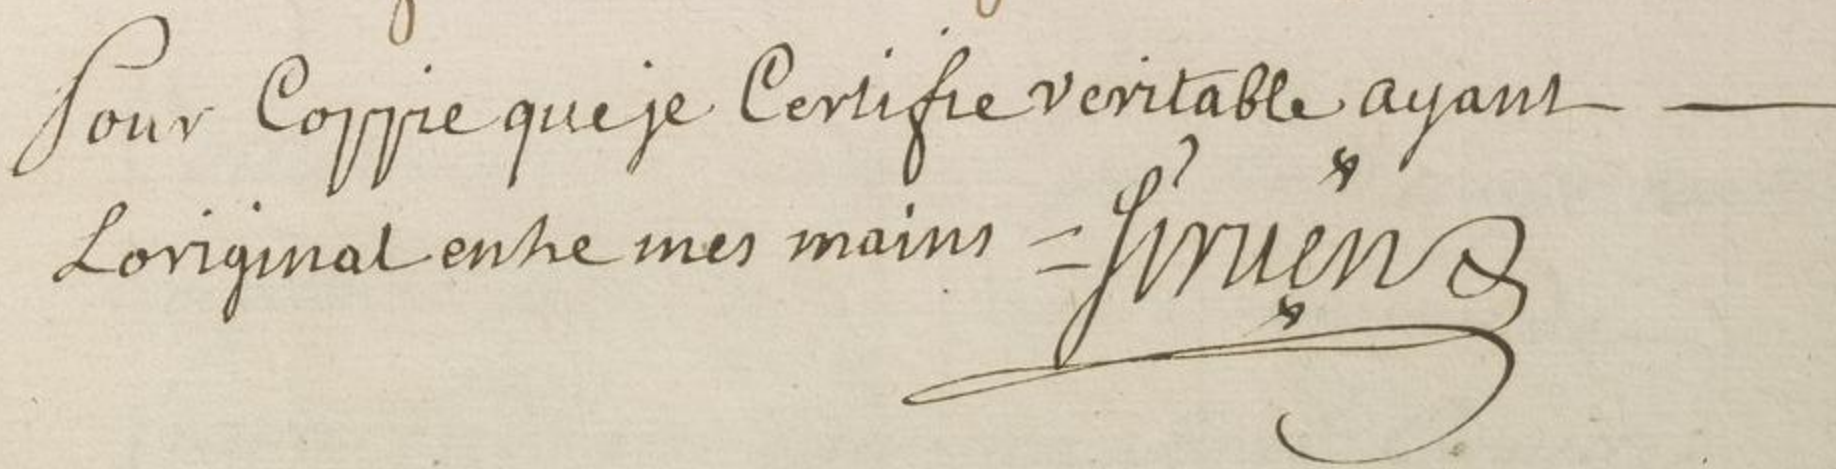 Pour Coppie que je Certifie veritable ayant
Loriginal entre mes mains =